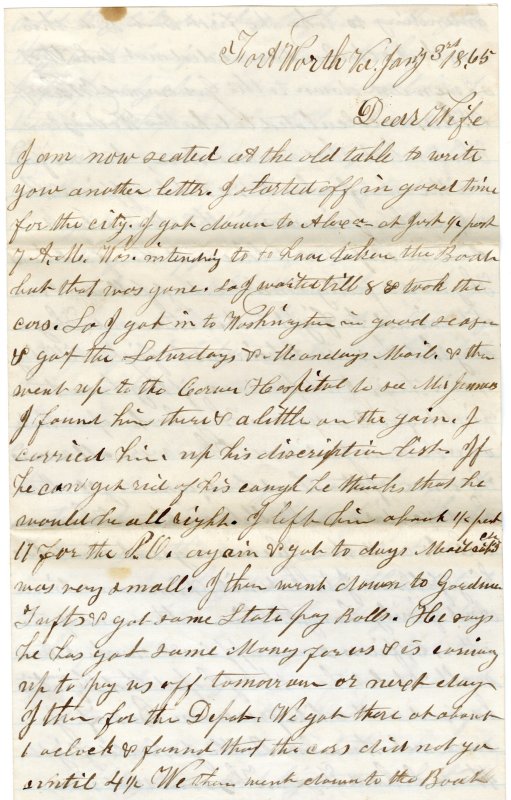 Fort Worth Va. Jany 3rd 1865
Dear Wife
I am now seated at the old table to write
you another letter. I started off in good time
for the city. I got down to Alexa at just ½ past
7 A.M. Was intending to to have taken the Boat
but that was gone. So I waited till 8 & took the
cars. So I got in to Washington in good season
& got the Saturdays & Mondays Mail. & then
went up to the Carver Hospital to see Mr
I found him there & a little on the gain. I
carried him up his discription list. If
he can get rid of his cough he thinks that he
would be all right. I left him about ½ past
11 for the P.O. again & got to days Mail
was very small. I then went down to Gardner
Tufts & got some State pay Rolls. He says
he has got some Money for us & is coming
up to pay us off tomorrow or next day
I then for the Depot. We got there at about
1 oclock & found that the cars did not go
until 4½ We then went down to the Boat